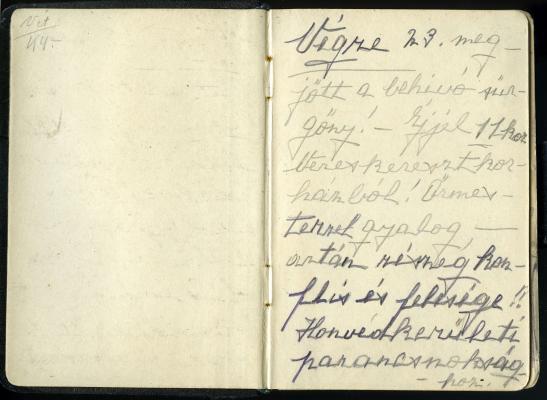 44.-
Végre 23. meg-
jött a behívó sür-
göny! - Éjjel 11 kor
Vereskereszt kór-
házból! Őrmes-
terrel gyalog —
aztán részeg kon-
flis és felesége!!
Honvédkerületi
parancsnokság-
- hoz.